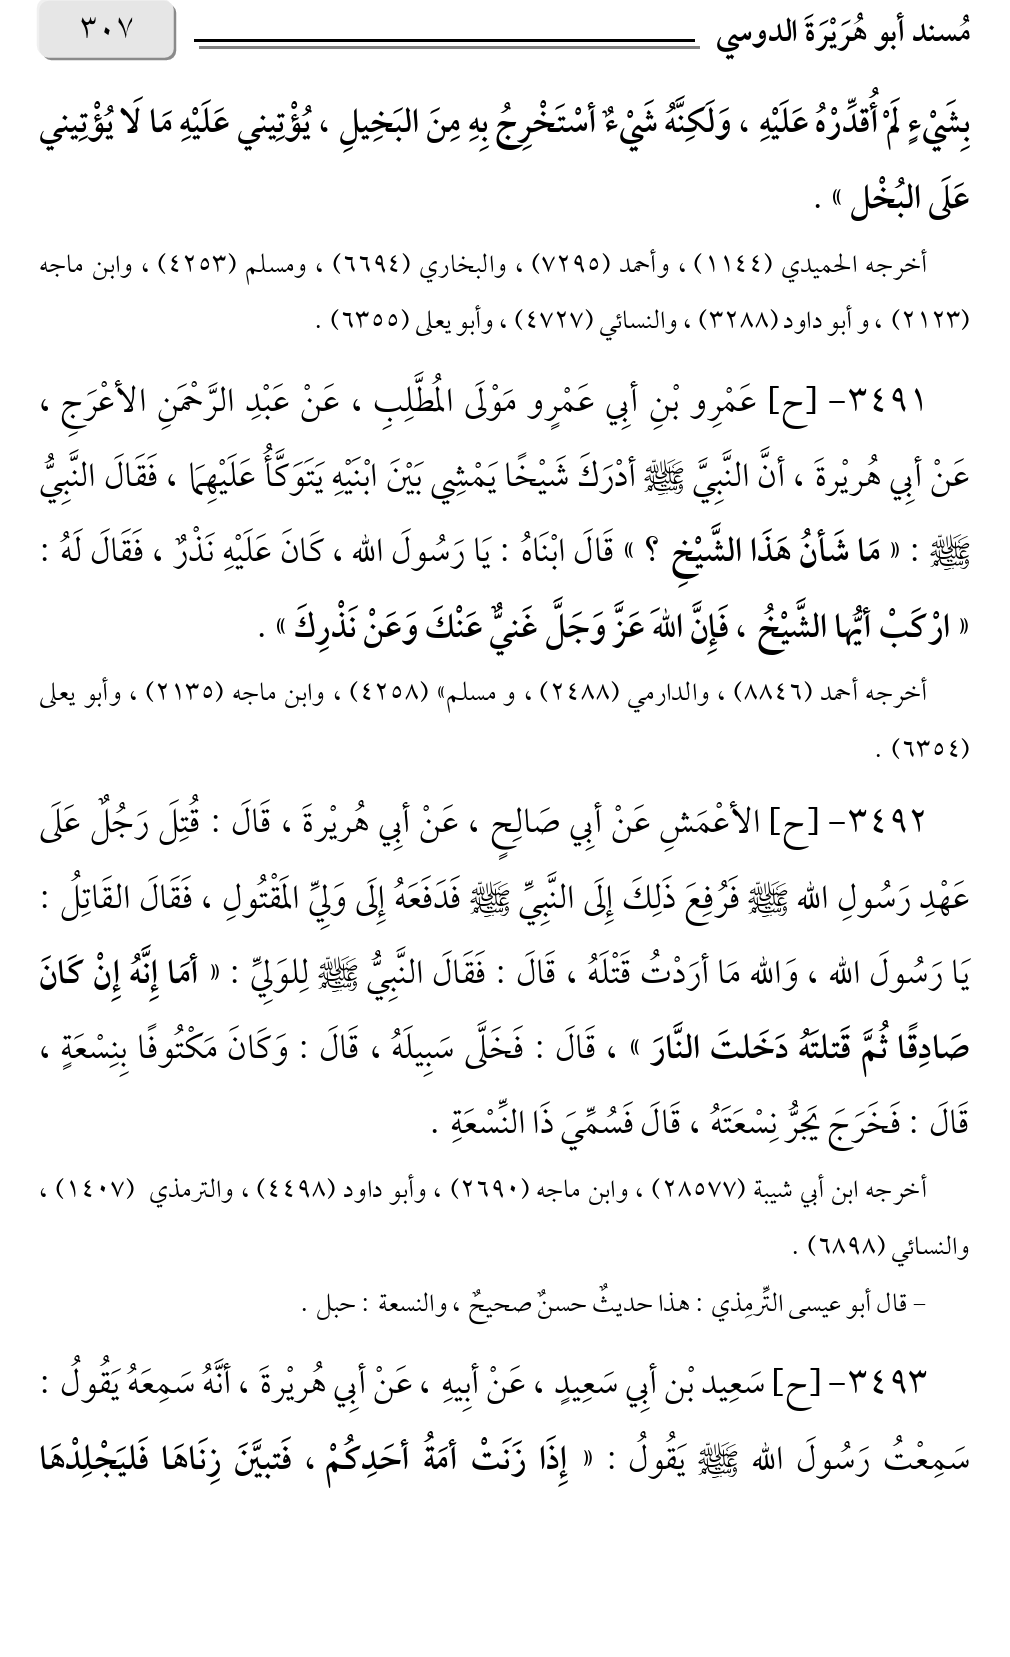 مُسند أبو هُرَيْرَةَ الدوسي ٣٠٧
بِشَيْءٍ لَمْ أُقدِّرْهُ عَلَيْهِ ، وَلَكِنَّهُ شَيْءٌ أسْتَخْرِجُ بِهِ مِنَ البَخِيلِ ، يُؤْتِيني عَلَيْهِ مَا لَا يُؤْتِيني
عَلَى البُخْل » .
أخرجه الحميدي (١١٤٤) ، وأحمد (٧٢٩٥) ، والبخاري (٦٦٩٤) ، ومسلم (٤٢٥٣) ، وابن ماجه
(٢١٢٣) ، و أبو داود (٣٢٨٨) ، والنسائي (٤٧٢٧) ، وأبو يعلى (٦٣٥٥) .
٣٤٩١- [ح] عَمْرِو بْنِ أبِي عَمْرٍو مَوْلَى المُطَّلِبِ ، عَنْ عَبْدِ الرَّحْمَنِ الأعْرَجِ ،
عَنْ أبِي هُريْرةَ ، أنَّ النَّبِيَّ ﷺ أدْرَكَ شَيْخًا يَمْشِي بَيْنَ ابْنَيْهِ يَتَوَكَّأُ عَلَيْهِمَا ، فَقَالَ النَّبِيُّ
ﷺ : « مَا شَأنُ هَذَا الشَّيْخِ ؟ » قَالَ ابْنَاهُ : يَا رَسُولَ الله ، كَانَ عَلَيْهِ نَذْرٌ ، فَقَالَ لَهُ :
« ارْكَبْ أيُّها الشَّيْخُ ، فَإِنَّ اللهَ عَزَّ وَجَلَّ غَنيٌّ عَنْكَ وَعَنْ نَذْرِكَ » .
أخرجه أحمد (٨٨٤٦) ، والدارمي (٢٤٨٨) ، و مسلم» (٤٢٥٨) ، وابن ماجه (٢١٣٥) ، وأبو يعلى
(٦٣٥٤) .
٣٤٩٢- [ح] الأعْمَشِ عَنْ أبِي صَالِحٍ ، عَنْ أبِي هُريْرةَ ، قَالَ : قُتِلَ رَجُلٌ عَلَى
عَهْدِ رَسُولِ الله ﷺ فَرُفِعَ ذَلِكَ إِلَى النَّبِيِّ ﷺ فَدَفَعَهُ إِلَى وَلِيِّ المَقْتُولِ ، فَقَالَ القَاتِلُ :
يَا رَسُولَ الله ، وَالله مَا أرَدْتُ قَتْلَهُ ، قَالَ : فَقَالَ النَّبِيُّ ﷺ لِلوَلِيِّ : « أمَا إِنَّهُ إِنْ كَانَ
صَادِقًا ثُمَّ قَتلتَهُ دَخَلتَ النَّارَ » ، قَالَ : فَخَلَّى سَبِيلَهُ ، قَالَ : وَكَانَ مَكْتُوفًا بِنِسْعَةٍ ،
قَالَ : فَخَرَجَ يَجرُّ نِسْعَتَهُ ، قَالَ فَسُمِّيَ ذَا النِّسْعَةِ .
أخرجه ابن أبي شيبة (٢٨٥٧٧) ، وابن ماجه (٢٦٩٠) ، وأبو داود (٤٤٩٨) ، والترمذي (١٤٠٧) ،
والنسائي (٦٨٩٨) .
- قال أبو عيسى التِّرمِذي : هذا حديثٌ حسنٌ صحيحٌ ، والنسعة : حبل .
٣٤٩٣- [ح] سَعِيد بْن أبِي سَعِيدٍ ، عَنْ أبِيهِ ، عَنْ أبِي هُريْرةَ ، أنَّهُ سَمِعَهُ يَقُولُ :
سَمِعْتُ رَسُولَ الله ﷺ يَقُولُ : « إِذَا زَنَتْ أمَةُ أحَدِكُمْ ، فَتبيَّنَ زِنَاهَا فَليَجْلِدْهَا